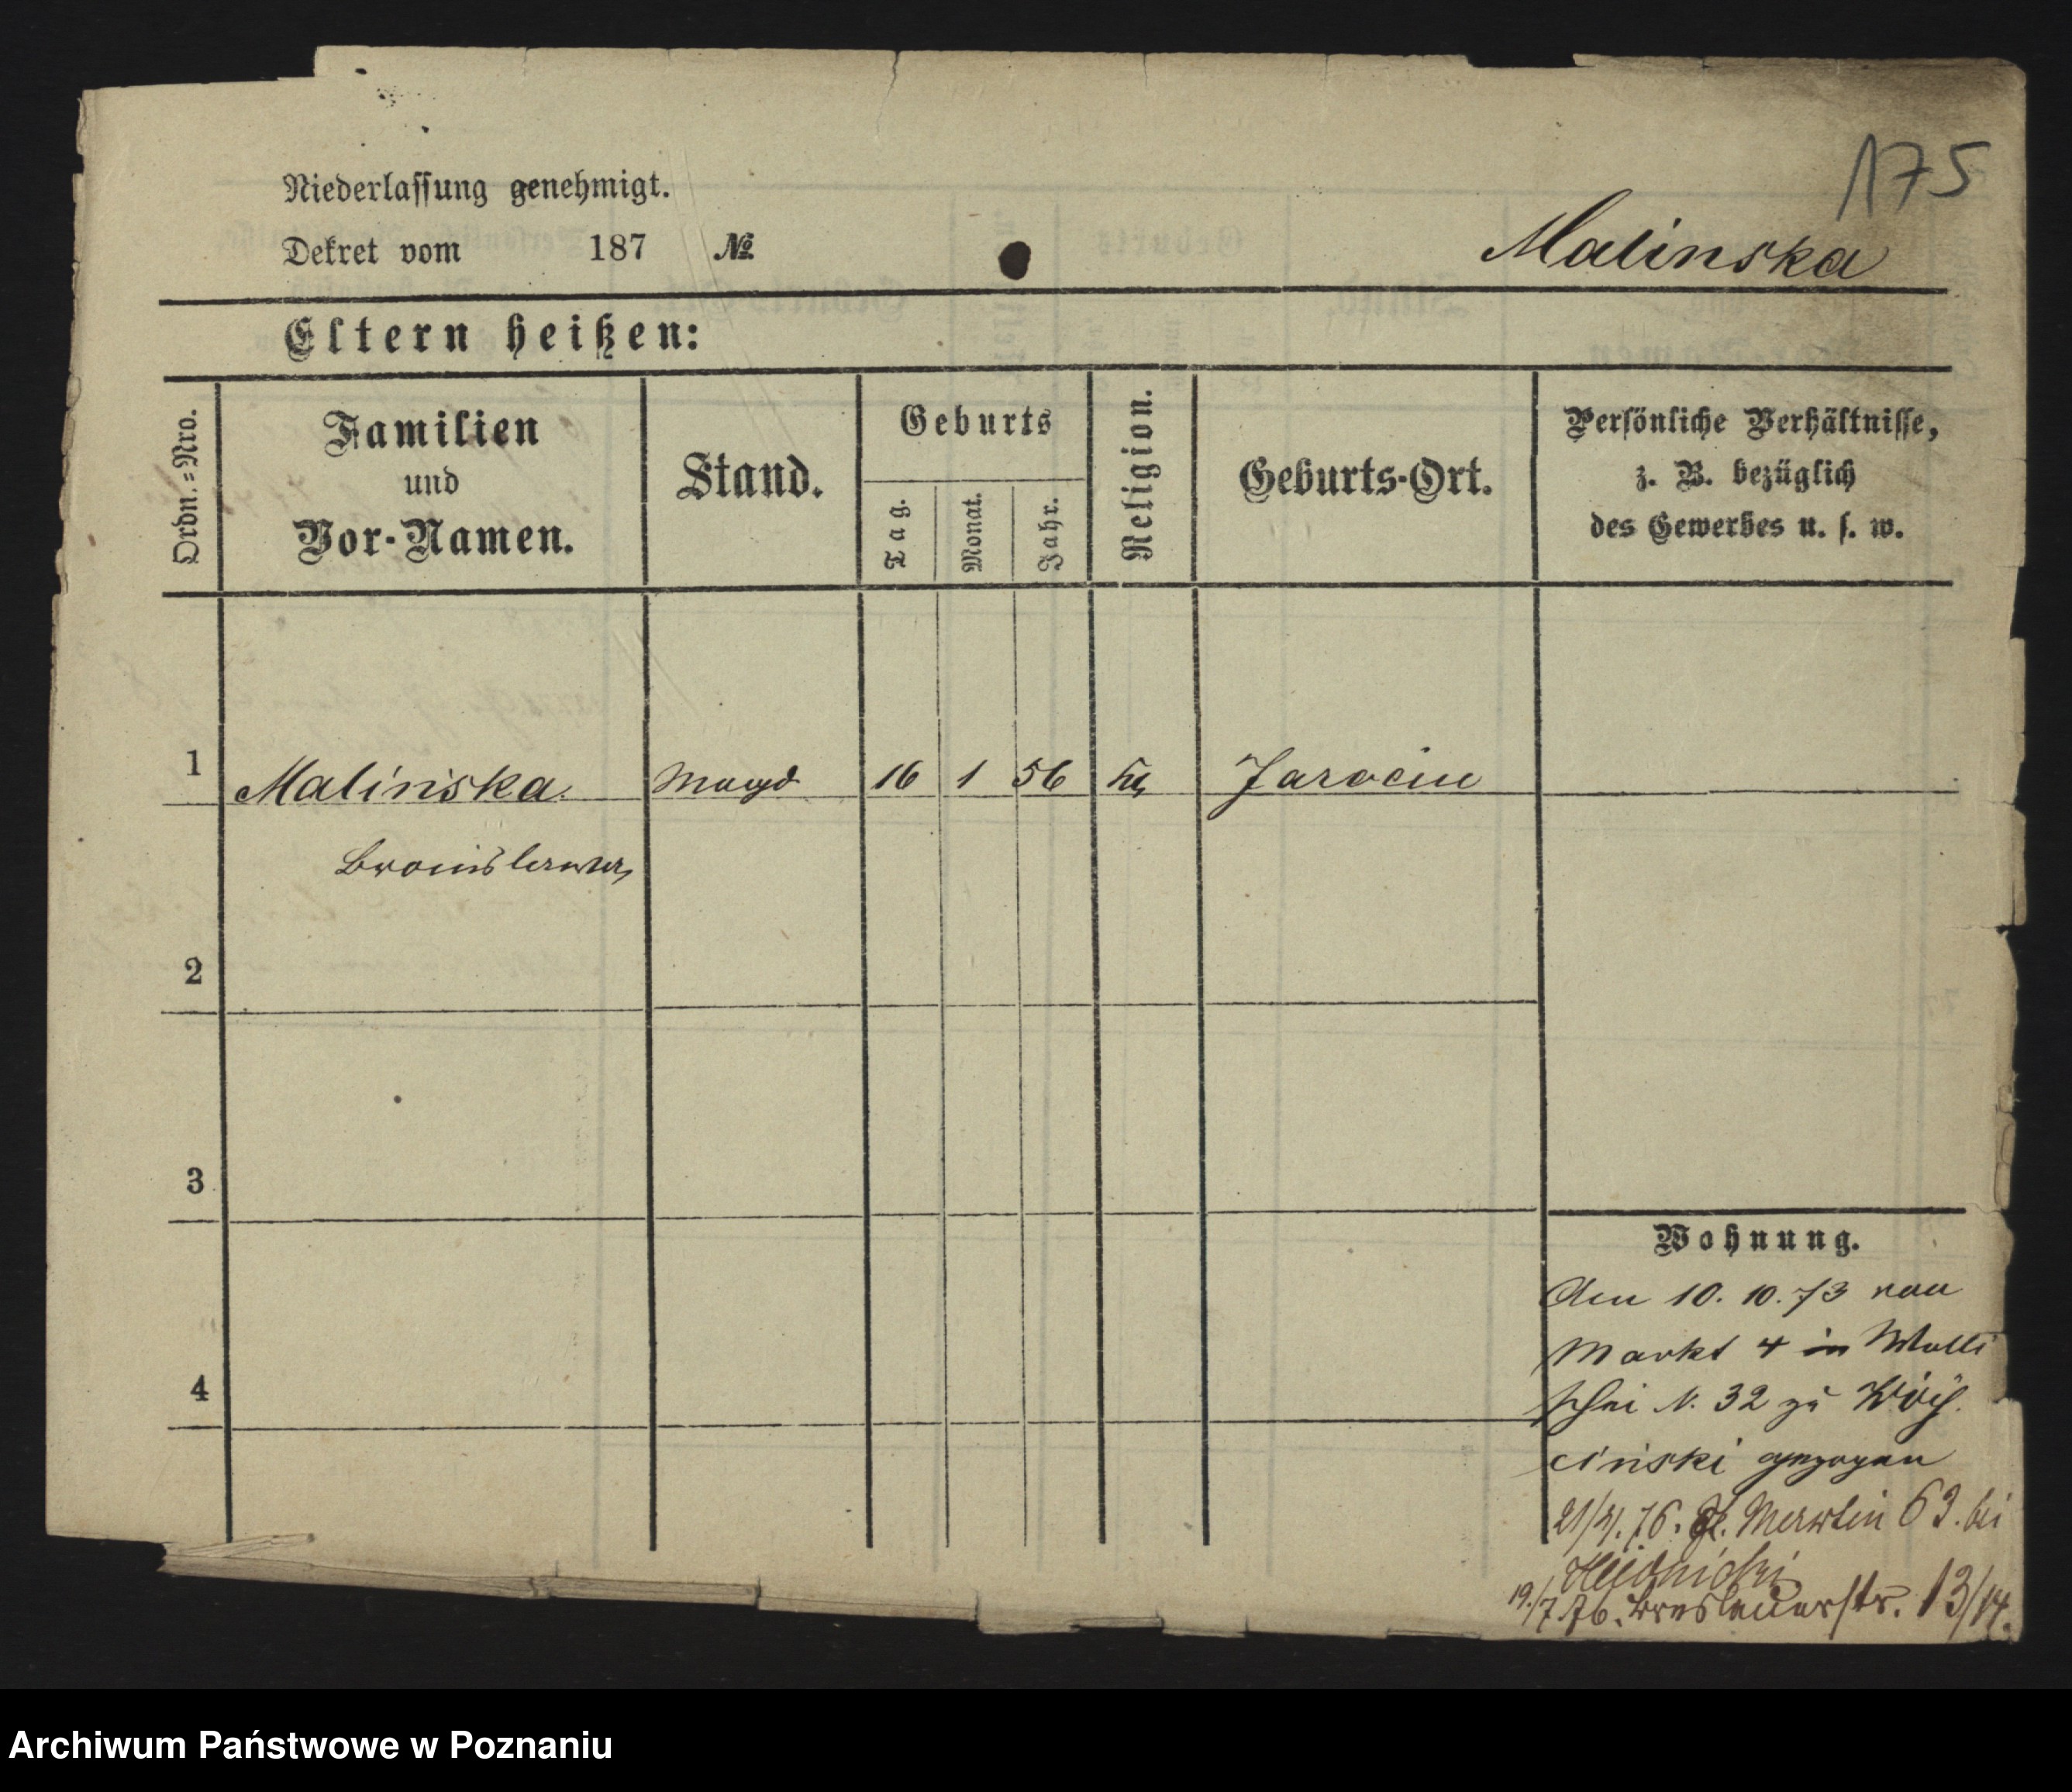 175
Niederlassung genehmigt.
Dekret vom 187 №
Malinska
Eltern heißen:
Ordn.=Nro.
Familien
und
Vor-Namen.
Stand.
Geburts
Tag.
Monat.
Jahr.
Religion.
Geburts-Ort.
Persönliche Verhältnisse,
z. B. bezüglich
des Gewerbes u. s. w.
1 Malińska Magd 16 1 56 Jarocin
Bronislawa
2
3
4
Wohnung.
Den 10. 10. 73 von
Markt 4 in Walli
schei N. 32 zu
cinski gezogen
76. St. Martin 63. bei
19./7.76. Breslauerstr. 13/14.
Archiwum Państwowe w Poznaniu